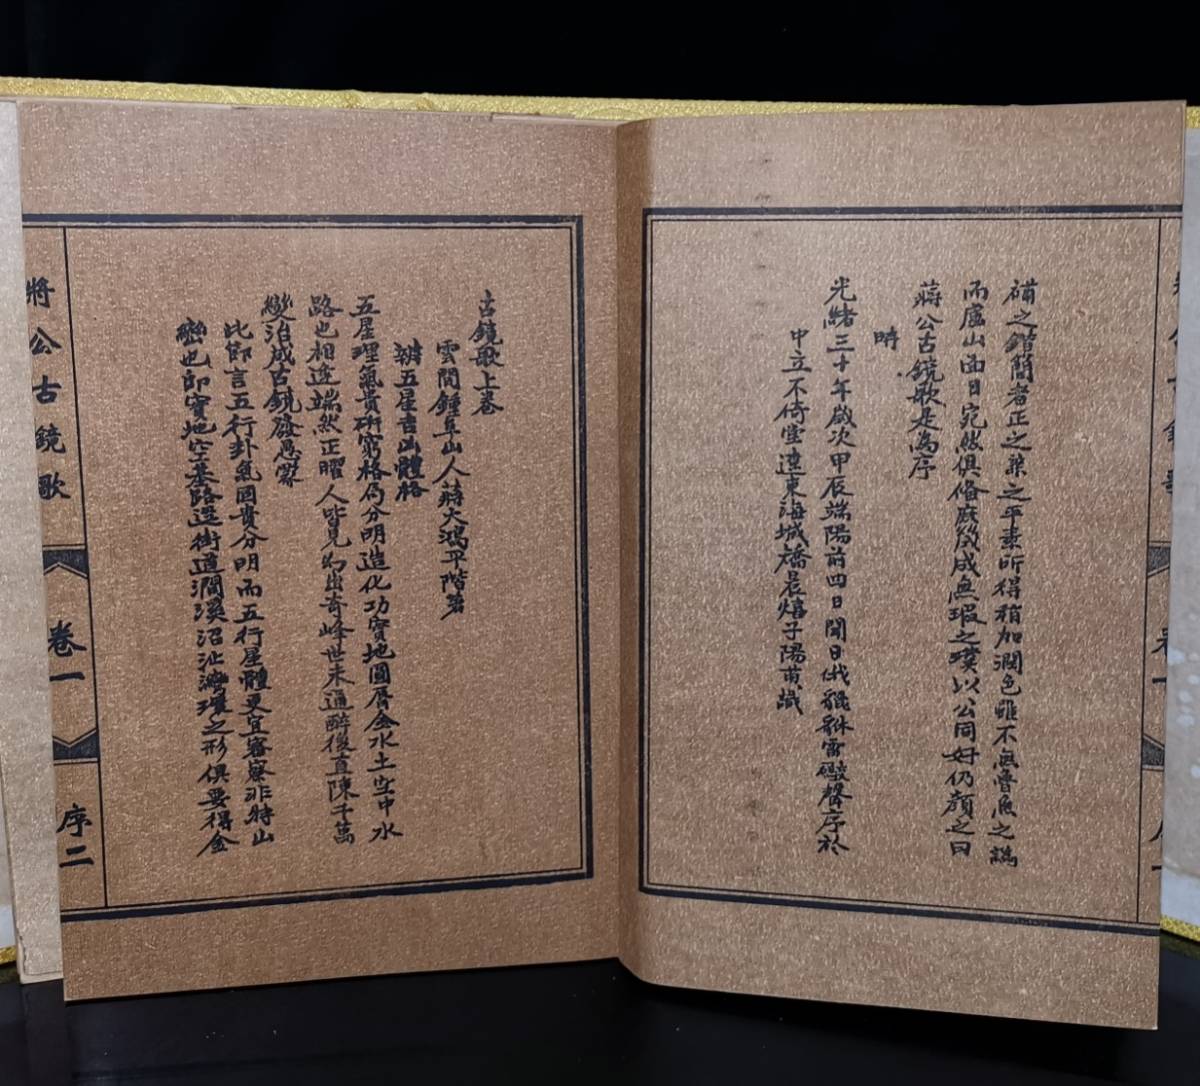 補之錯簡者正之案之平素所得稍加潤色雖不無魯魚之譌
而廬山面目宛然俱俻庶幾成無瑕之璞以公同好仍顏之曰
蔣公古鏡歌是為序
時
光緒三十年歲次甲辰端陽前四日聞日俄貔貅雷礮聲序於
中立不倚堂遼東海城喬晨熺子陽甫識
古鏡歌上卷
雲間鍾阜山人蔣大鴻平階著
辨五星吉凶體格
五星理氣貴研窮格局分明造化功實地圖屬金水土空中水
路也相逢端然正曜人皆見幻出奇峰世未通醉後直陳千萬
變冶成古鏡發愚蒙
此節言五行卦氣固貴分明而五行星體更宜審察非特山
巒也即實地空基路逕街道澗溪沼沚灣環之形俱要得金
蔣公古鏡歌
卷一
序二